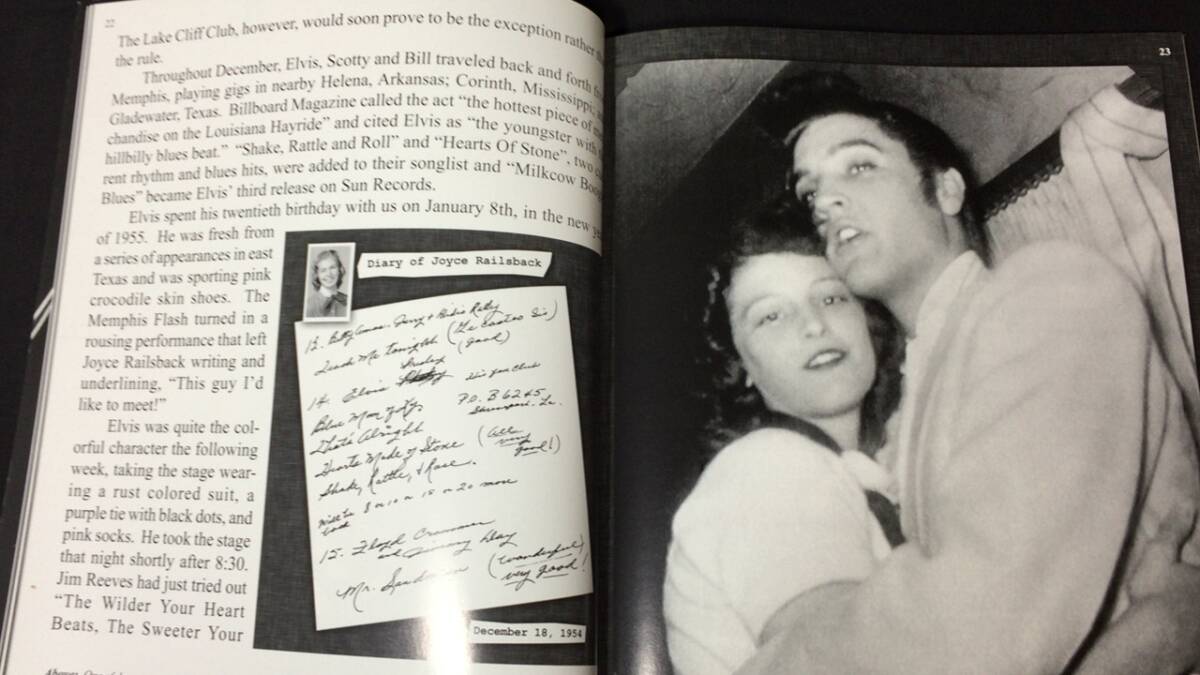 22
The Lake Cliff Club, however, would soon prove to be the exception rather
the rule.
Throughout December, Elvis, Scotty and Bill traveled back and forth
Memphis, playing gigs in nearby Helena, Arkansas; Corinth, Mississippi;
Gladewater, Texas. Billboard Magazine called the act “the hottest piece of
chandise on the Louisiana Hayride” and cited Elvis as “the youngster with
hillbilly blues beat.” “Shake, Rattle and Roll” and “Hearts Of Stone”, two
rent rhythm and blues hits, were added to their songlist and “Milkcow
Blues” became Elvis’ third release on Sun Records.
Elvis spent his twentieth birthday with us on January 8th, in the new
of 1955. He was fresh from
a series of appearances in east
Texas and was sporting pink
crocodile skin shoes. The
Memphis Flash turned in a
rousing performance that left
Joyce Railsback writing and
underlining, “This guy I’d
like to meet!”
Elvis was quite the col-
orful character the following
week, taking the stage wear-
ing a rust colored suit, a
purple tie with black dots, and
pink socks. He took the stage
that night shortly after 8:30.
Jim Reeves had just tried out
“The Wilder Your Heart
Beats, The Sweeter Your
Diary of Joyce Railsback
Teach Me Tonight
(good)
14. Elvis Presley
P.O. B 6245
That's Alright
Hearts Made of Stone (All very good!)
Shake, Rattle, &
8 or 10 or 15 or 20 more
15. Floyd Crammer
and Jimmy Day
Mr. (wonderful
very good!
December 18, 1954
23